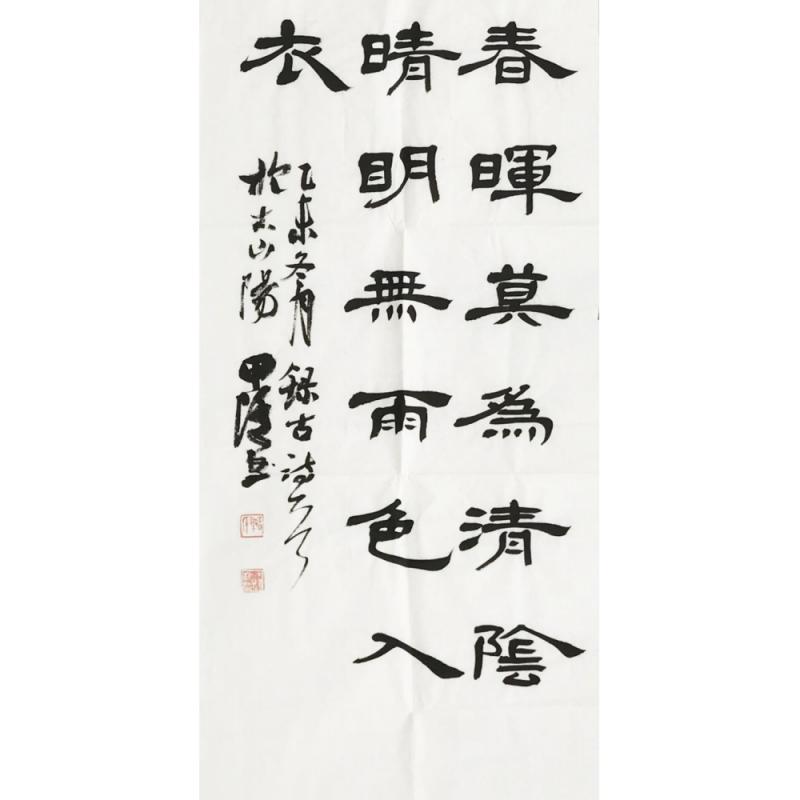 春暉莫為清陰
晴明無雨色入
衣
乙未冬月錄古詩
於太山陽